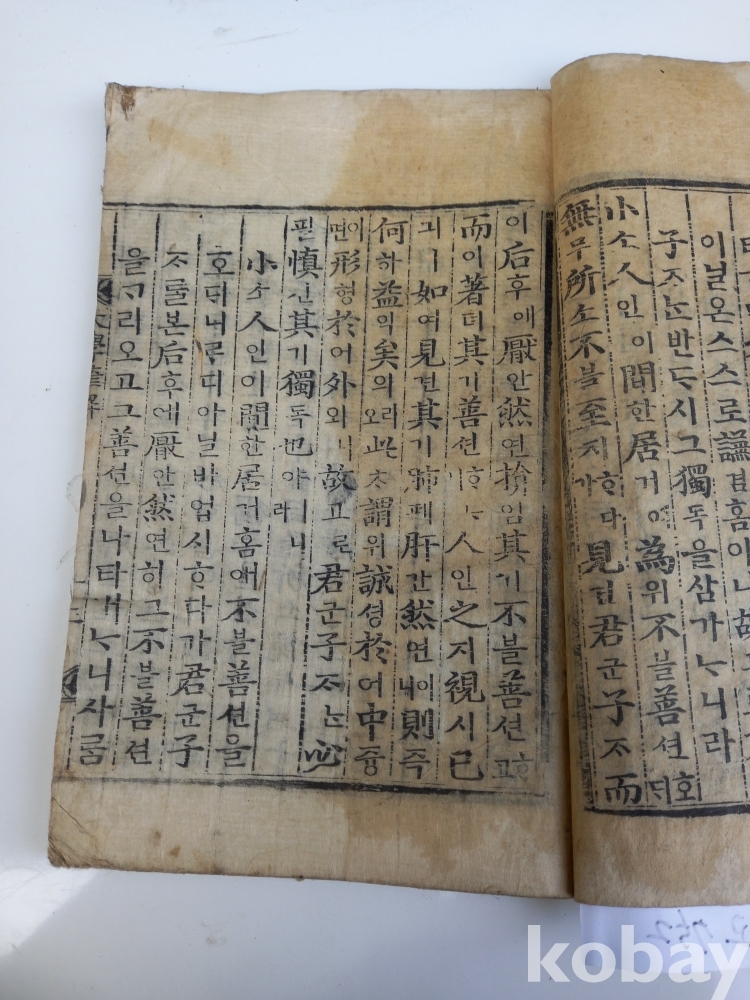 이닐온스스로謙겸홈이니故
子ᄌᆞᄂᆞᆫ반ᄃᆞ시그獨독을삼가ᄂᆞ니라
小쇼人인이間한居거애爲위不블善션호ᄃᆡ
無무所소不블至지ᄒᆞ다가見견君군子ᄌᆞ而
이后후에厭안然연揜엄其기不블善션ᄒᆞ고
而이著뎌其기善션ᄒᆞᄂᆞ니人인之지視시己
긔ㅣ如여見견其기肺폐肝간然연이니則즉
何하益익矣의리오此ᄎᆞ謂위誠셩於어中즁
이면形형於어外외니故고로君군子ᄌᆞᄂᆞᆫ必
필愼신其기獨독也야ㅣ니라
小쇼人인이間한居거홈애不블善션을
호ᄃᆡ니르디아닐바업시ᄒᆞ다가君군子
ᄌᆞᄅᆞᆯ본后후에厭안然연히그不블善션
을ᄀᆞ리오고그善션을나타내ᄂᆞ니사ᄅᆞᆷ
大學諺解
三
kobay